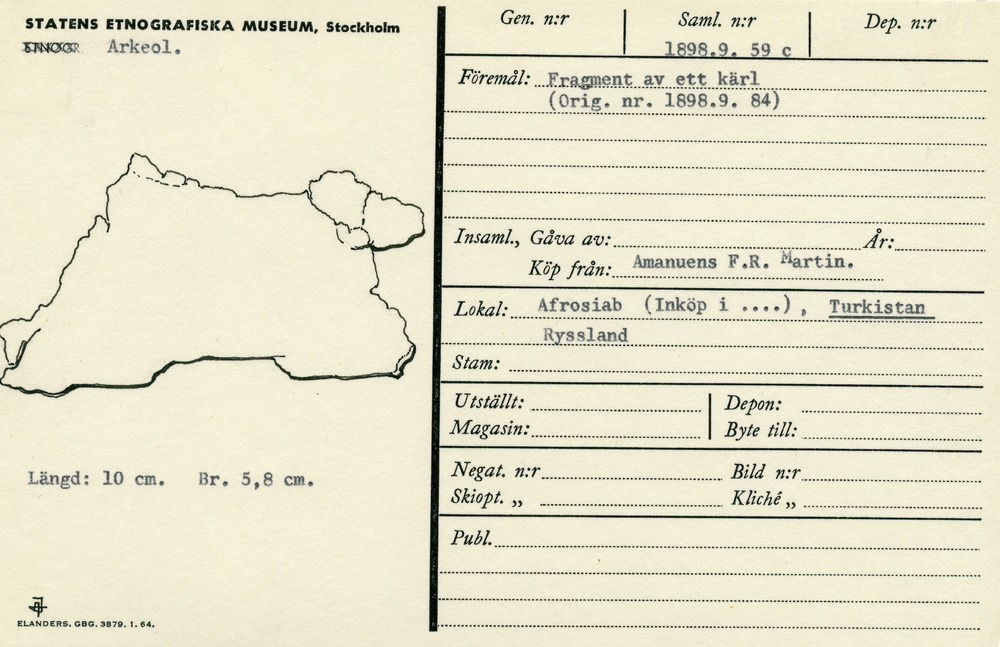 STATENS ETNOGRAFISKA MUSEUM, Stockholm
ETNOGR Arkeol.
Längd: 10 cm. Br. 5,8 cm.
ELANDERS. GBG. 3879. 1. 64.
Gen. n:r Saml. n:r Dep. n:r
1898.9. 59 c
Föremål: Fragment av ett kärl
(Orig. nr. 1898.9. 84)
Insaml., Gåva av: År:
Köp från: Amanuens F.R. Martin.
Lokal: Afrosiab (Inköp i ....), Turkistan
Ryssland
Stam:
Utställt: Depon:
Magasin: Byte till:
Negat. n:r Bild n:r
Skiopt. „ Kliché „
Publ.